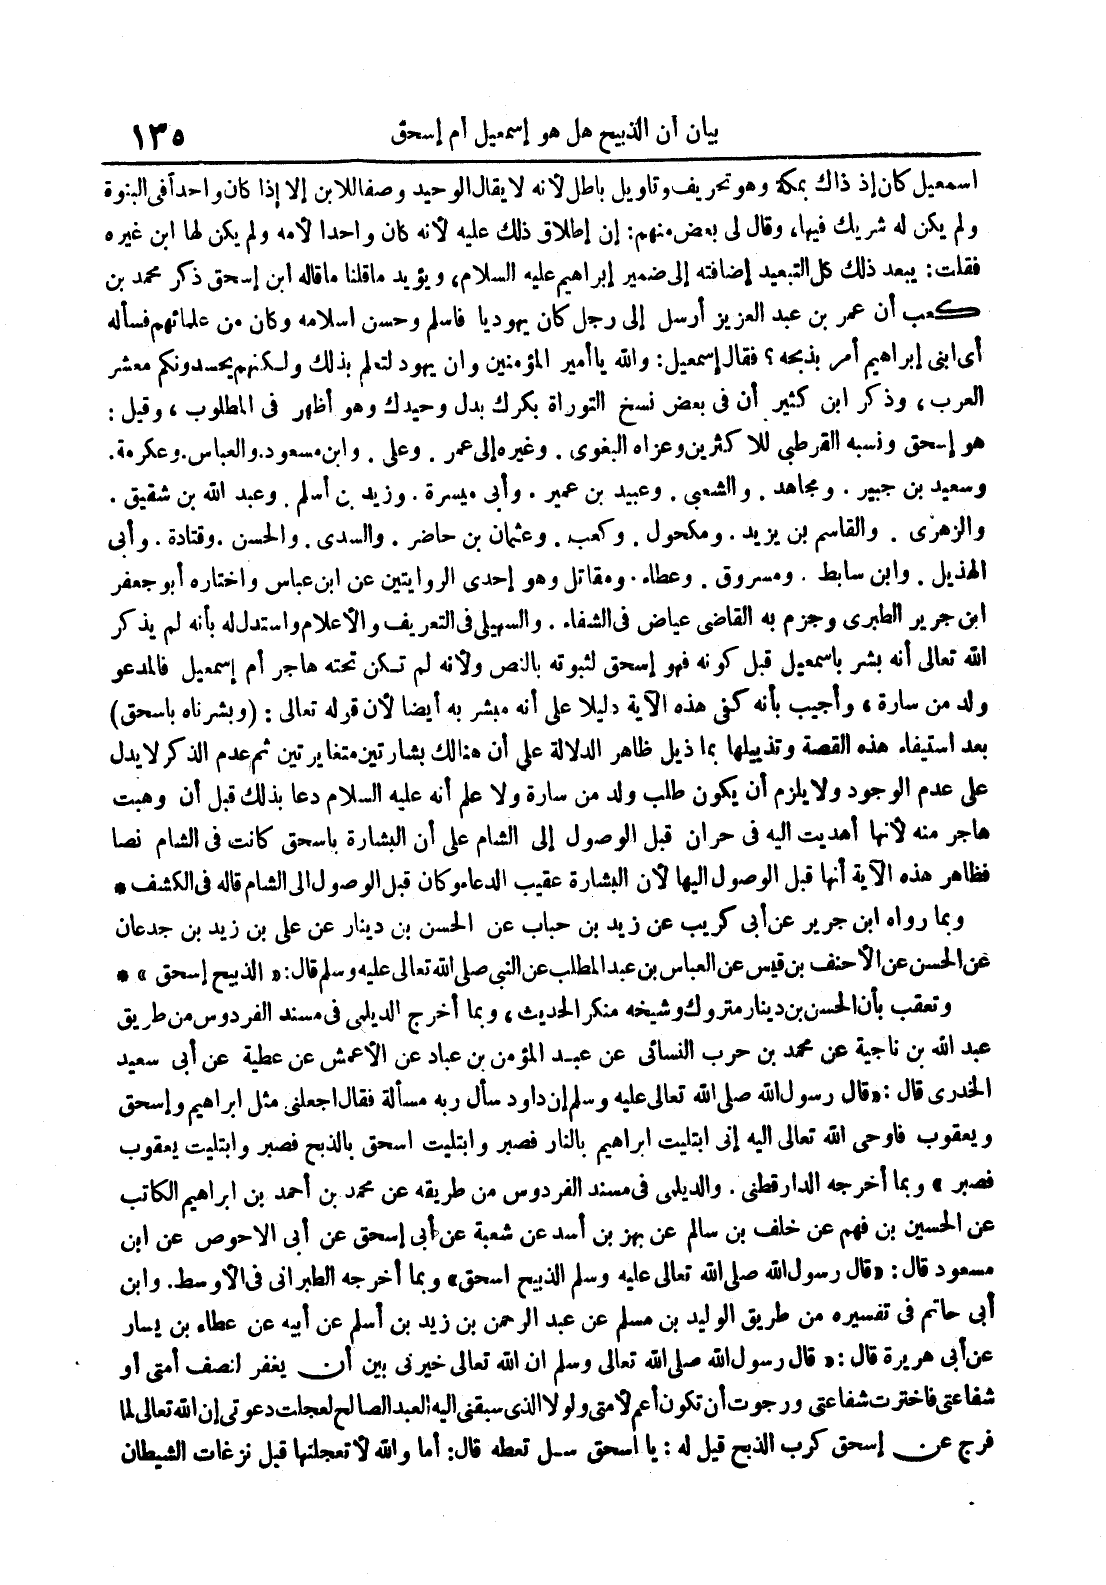 بيان أن الذبيح هل هو إسمعيل أم إسحق ١٣٥
اسمعيل كان إذ ذاك بمكة وهو تحريف وتاويل باطل لأنه لا يقال الوحيد وصفا للابن إلا إذا كان واحدا فى البنوة
ولم يكن له شريك فيها، وقال لى بعض منهم: إن إطلاق ذلك عليه لأنه كان واحدا لأمه ولم يكن لها ابن غيره
فقلت: يبعد ذلك كل التبعيد إضافته إلى ضمير إبراهيم عليه السلام، ويؤيد ماقلنا ماقاله ابن إسحق ذكر محمد بن
كعب أن عمر بن عبد العزيز أرسل إلى رجل كان يهوديا فاسلم وحسن اسلامه وكان من علمائهم فسأله
أى ابنى إبراهيم أمر بذبحه؟ فقال إسمعيل: والله ياأمير المؤمنين وان يهود لتعلم بذلك ولكنهم يحسدونكم معشر
العرب، وذكر ابن كثير أن فى بعض نسخ التوراة بكرك بدل وحيدك وهو أظهر فى المطلوب، وقيل:
هو إسحق ونسبه القرطبي للاكثرين وعزاه البغوى. وغيره إلى عمر. وعلي. وابن مسعود. والعباس. وعكرمة.
وسعيد بن جبير. ومجاهد. والشعبي. وعبيد بن عمير. وأبى ميسرة. وزيد بن أسلم. وعبد الله بن شقيق.
والزهرى. والقاسم بن يزيد. ومكحول. وكعب. وعثمان بن حاضر. والسدى. والحسن. وقتادة. وأبى
الهذيل. وابن سابط. ومسروق. وعطاء. ومقاتل وهو إحدى الروايتين عن ابن عباس واختاره أبو جعفر
ابن جرير الطبرى وجزم به القاضى عياض فى الشفاء. والسهيلى فى التعريف والأعلام واستدل له بأنه لم يذكر
الله تعالى أنه بشر باسمعيل قبل كونه فهو إسحق لثبوته بالنص ولأنه لم تكن تحته هاجر أم إسمعيل فالمدعو
ولد من سارة، وأجيب بأنه كفى هذه الآية دليلا على أنه مبشر به أيضا لأن قوله تعالى: (وبشرناه باسحق)
بعد استيفاء هذه القصة وتذييلها بما ذيل ظاهر الدلالة على أن هنالك بشارتين متغايرتين ثم عدم الذكر لايدل
على عدم الوجود ولا يلزم أن يكون طلب ولد من سارة ولا علم أنه عليه السلام دعا بذلك قبل أن وهبت
هاجر منه لأنها أهديت اليه فى حران قبل الوصول إلى الشام على أن البشارة باسحق كانت فى الشام نصا
فظاهر هذه الآية أنها قبل الوصول اليها لأن البشارة عقيب الدعاء وكان قبل الوصول الى الشام قاله فى الكشف *
وبما رواه ابن جرير عن أبى كريب عن زيد بن حباب عن الحسن بن دينار عن على بن زيد بن جدعان
عن الحسن عن الأحنف بن قيس عن العباس بن عبد المطلب عن النبي صلى الله تعالى عليه وسلم قال: «الذبيح إسحق» *
وتعقب بأن الحسن بن دينار متروك وشيخه منكر الحديث، وبما أخرج الديلمى فى مسند الفردوس من طريق
عبد الله بن ناجية عن محمد بن حرب النسائى عن عبد المؤمن بن عباد عن الأعمش عن عطية عن أبى سعيد
الخدرى قال: «قال رسول الله صلى الله تعالى عليه وسلم إن داود سأل ربه مسألة فقال اجعلنى مثل ابراهيم وإسحق
ويعقوب فاوحى الله تعالى اليه إنى ابتليت ابراهيم بالنار فصبر وابتليت اسحق بالذبح فصبر وابتليت يعقوب
فصبر» وبما أخرجه الدارقطنى. والديلمى فى مسند الفردوس من طريقه عن محمد بن أحمد بن ابراهيم الكاتب
عن الحسين بن فهم عن خلف بن سالم عن بهز بن أسد عن شعبة عن أبى إسحق عن أبى الاحوص عن ابن
مسعود قال: «قال رسول الله صلى الله تعالى عليه وسلم الذبيح اسحق» وبما أخرجه الطبرانى فى الأوسط. وابن
أبى حاتم فى تفسيره من طريق الوليد بن مسلم عن عبد الرحمن بن زيد بن أسلم عن أبيه عن عطاء بن يسار
عن أبى هريرة قال: «قال رسول الله صلى الله تعالى وسلم ان الله تعالى خيرنى بين أن يغفر لنصف أمتى أو
شفاعتى فاخترت شفاعتى ورجوت أن تكون أعم لأمتى ولولا الذى سبقنى اليه العبد الصالح لعجلت دعوتى إن الله تعالى لما
فرج عن إسحق كرب الذبح قيل له: يا اسحق سل تعطه قال: أما والله لأتعجلنها قبل نزغات الشيطان